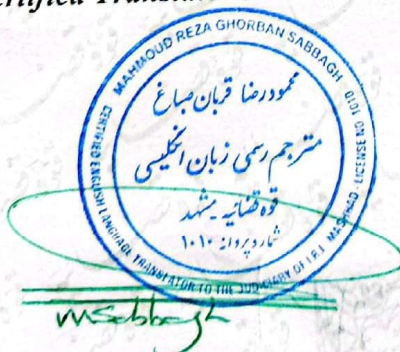 MAHMOUD REZA GHORBAN SABBAGH
CERTIFIED ENGLISH LANGUAGE TRANSLATOR TO THE JUDICIARY OF I.R.I MASHHAD - LICENSE NO 1010
محمودرضا قربان صباغ
مترجم رسمی زبان انگلیسی
قوه قضائیه - مشهد
شماره پروانه ۱۰۱۰
MSabbagh